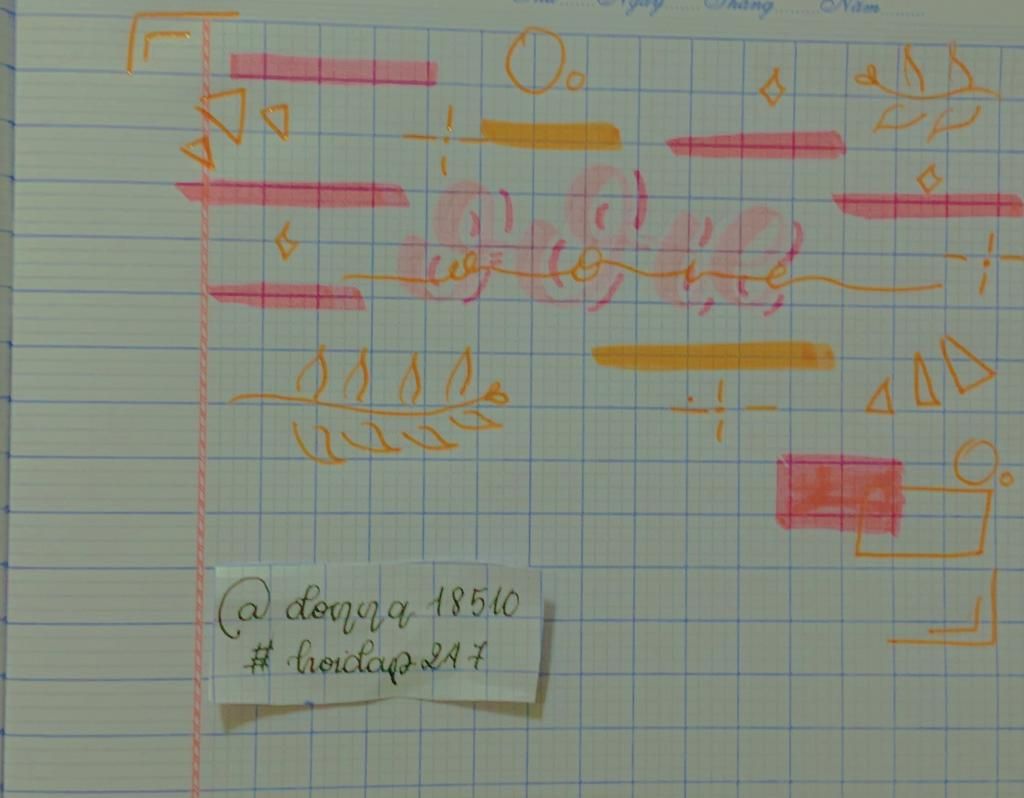 Thứ Ngày Tháng Năm
@ donnq 18510
# hoidap 247